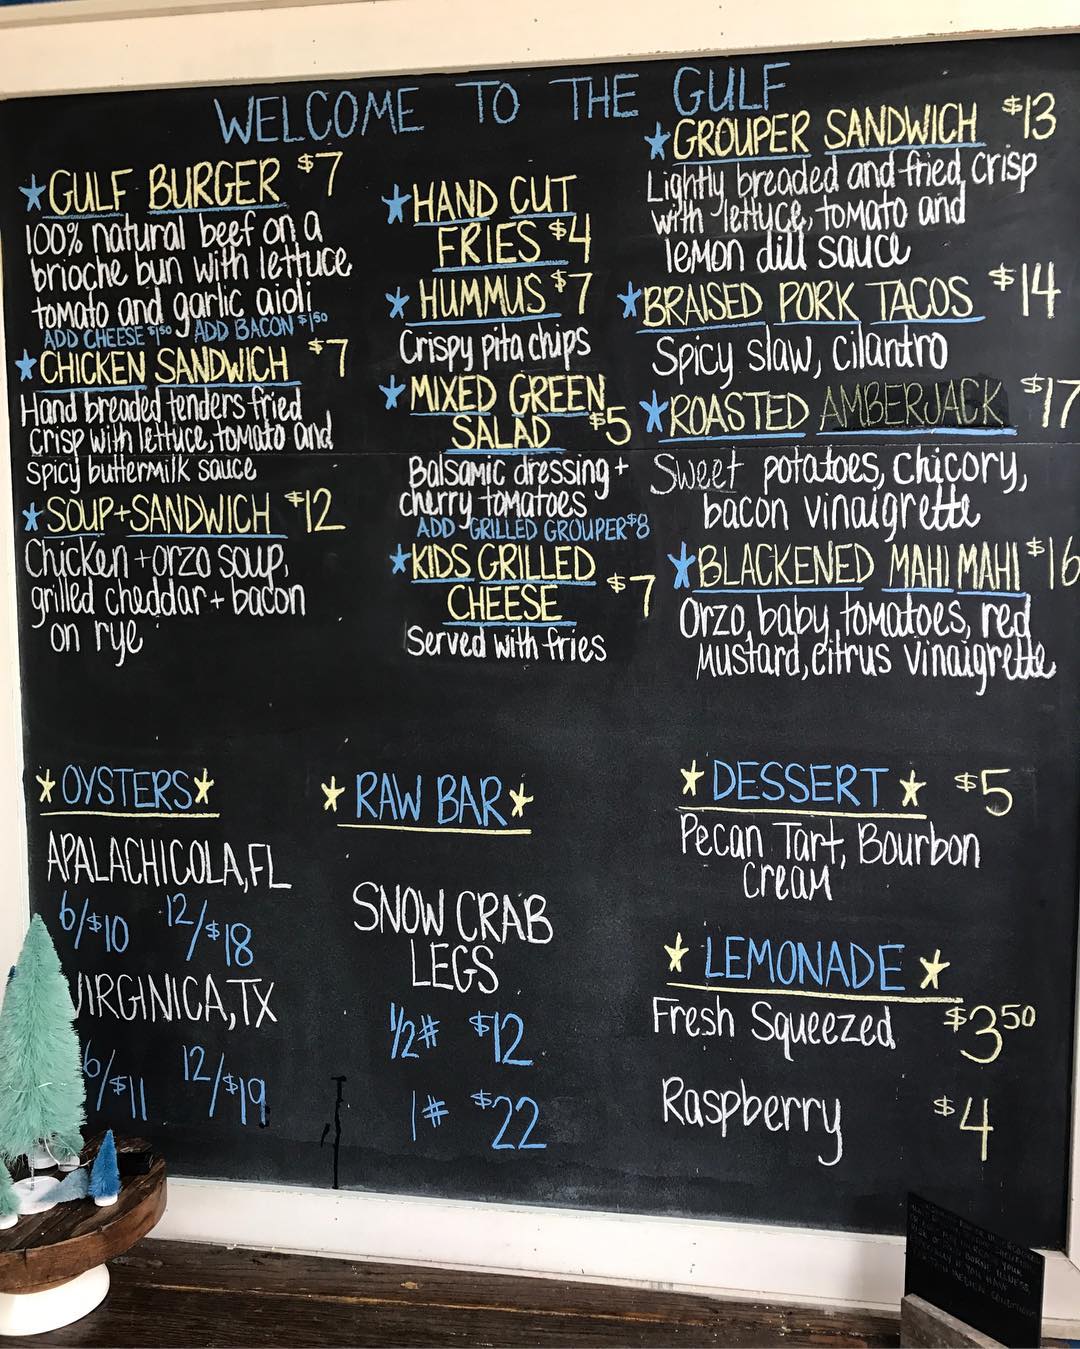 WELCOME TO THE GULF
GULF BURGER $7
100% natural beef on a
brioche bun with lettuce
tomato and garlic aioli
ADD CHEESE $1.50 ADD BACON $1.50
CHICKEN SANDWICH $7
Hand breaded tenders fried
crisp with lettuce, tomato and
spicy buttermilk sauce
SOUP+SANDWICH $12
Chicken + orzo soup,
grilled cheddar + bacon
on rye
HAND CUT
FRIES $4
HUMMUS $7
Crispy pita chips
MIXED GREEN
SALAD $5
Balsamic dressing +
cherry tomatoes
ADD GRILLED GROUPER $8
KIDS GRILLED
CHEESE $7
Served with fries
GROUPER SANDWICH $13
Lightly breaded and fried crisp
with lettuce, tomato and
lemon dill sauce
BRAISED PORK TACOS $14
Spicy slaw, cilantro
ROASTED AMBERJACK $17
Sweet potatoes, chicory,
bacon vinaigrette
BLACKENED MAHI MAHI $16
Orzo, baby tomatoes, red
mustard, citrus vinaigrette
OYSTERS
APALACHICOLA, FL
6/$10 12/$18
VIRGINICA, TX
6/$11 12/$19
RAW BAR
SNOW CRAB
LEGS
1/2# $12
1# $22
DESSERT $5
Pecan Tart, Bourbon
cream
LEMONADE
Fresh Squeezed $3.50
Raspberry $4